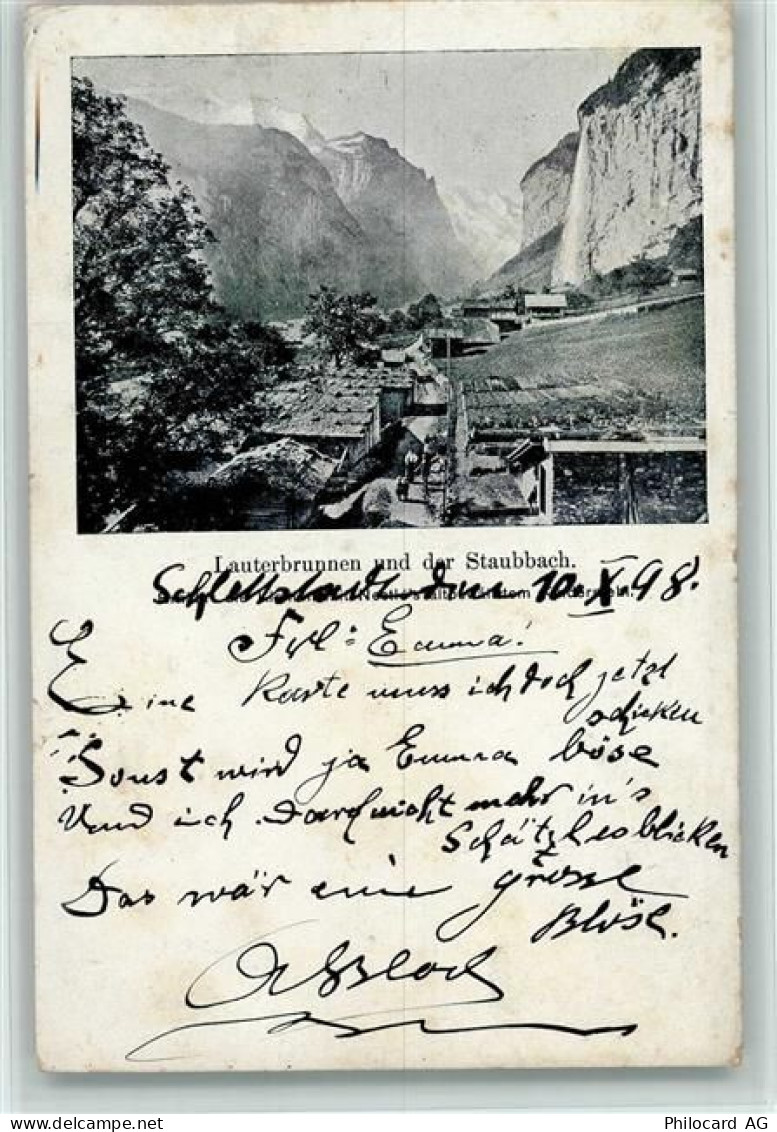 Lauterbrunnen und der Staubbach.
Schlettstadt den 10. X. 98.
Nestlé's
Frl: Emma!
Eine Karte muss ich doch jetzt
schicken
Sonst wird ja Emma böse
Und ich darf nicht mehr in's
Schätzles blicken
Das wär eine grosse
Blöse.
Bloch
Philocard AG